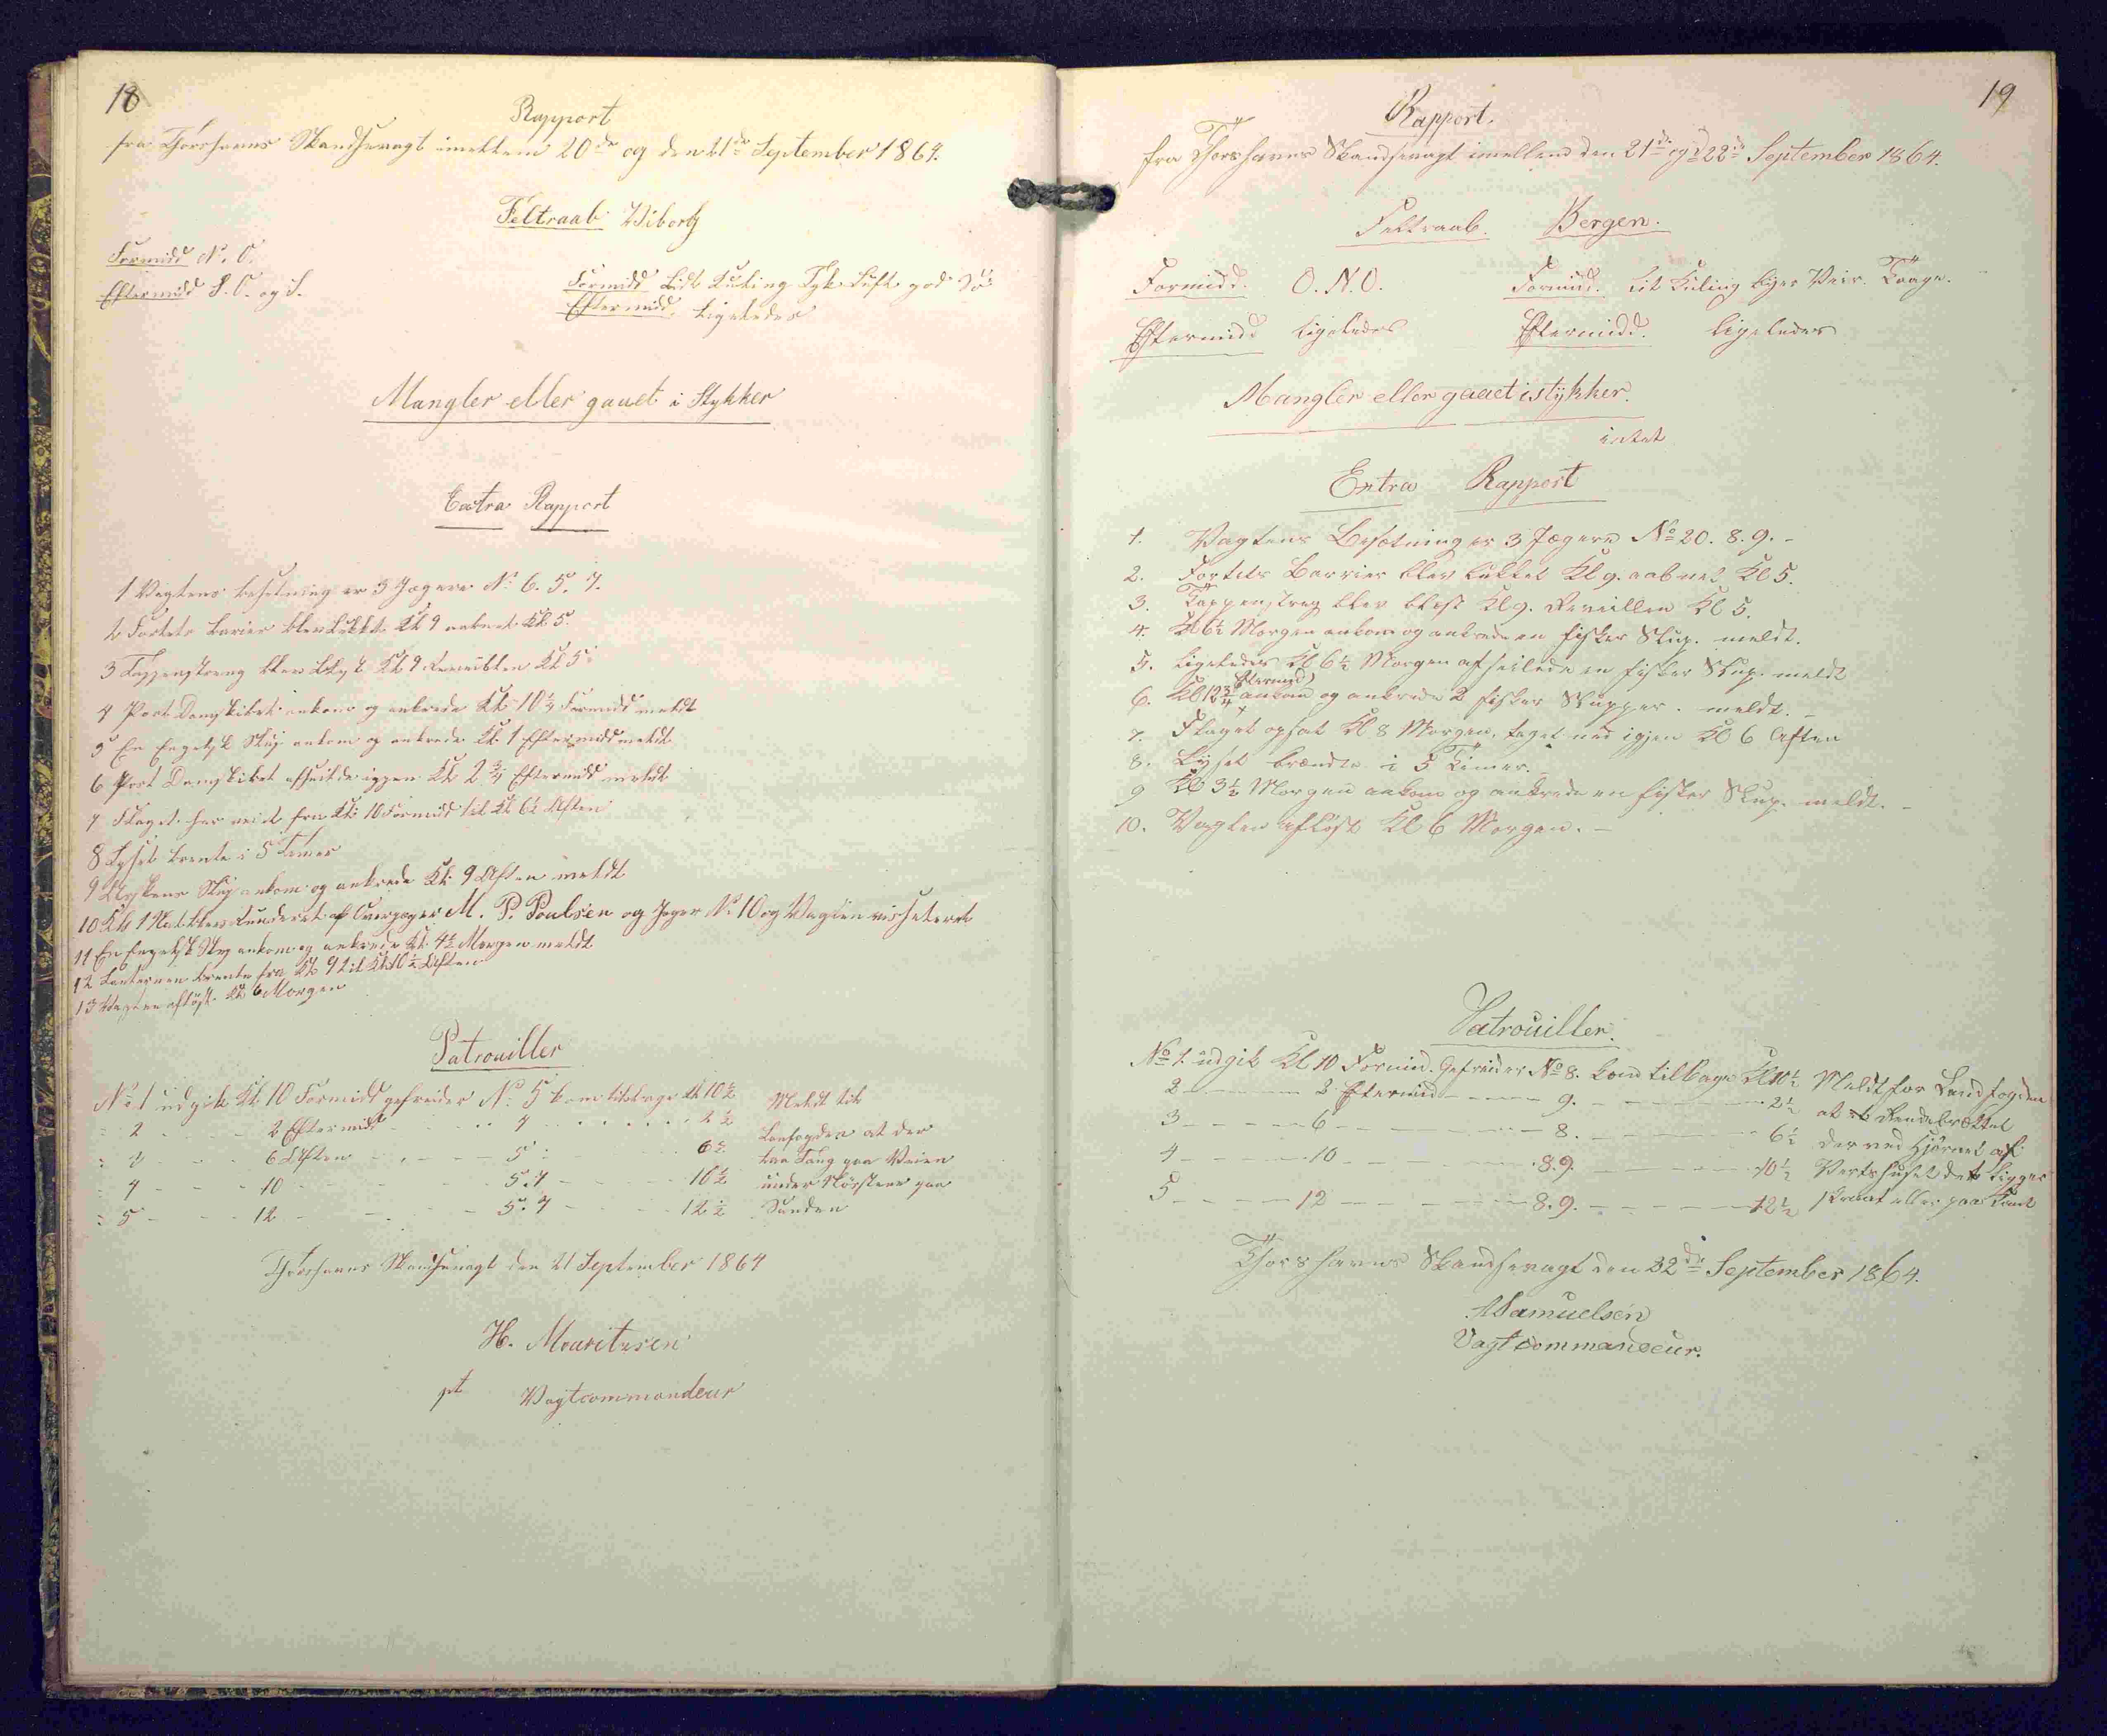 18
Rapport
fra Thorshavns Skandsevagt imellem 20de og den 21de September 1864.
Feltraab Viborg
Formidd N. O.
Eftermidd S. O. og S.
Formidd Lidt Kuling Tyk Luft god Sö
Eftermidd. Ligeledes
Mangler eller gaaet i Stykker
Extra Rapport
1 Vagtens besetning er 3 Jægere No 6. 5. 7.
2 Fortets Barier blev lukket Kl 9 aabnet Kl. 5.
3 Tappenstreg blev blest Kl 9 Reveillen Kl 5.
4 Post Dampskibet ankom og ankrede Kl. 10 1/2 Formidd meldt
5 En Engelsk Slup ankom og ankrede Kl. 1 Eftermidd meldt
6 Post Dampskibet afseilede igjen Kl 2 3/4 Eftermidd meldt
7 Flaget har veiet fra Kl. 10 Formidd til Kl 6 1/2 Aften
8 Lyset brente i 5 Timer
9 Slup ankom og ankrede Kl. 9 Aften meldt
10 Kl. 1 Nat blev Runderet af Overjæger M. P. Poulsen og Jeger No 10 og Vagten visiteret
11 En Engelsk Slup ankom og ankrede Kl. 4 1/2 Morgen meldt
12 Lanternen brente fra Kl 9 til Kl 10 1/2 Aften
13 Vagten aflöst Kl 6 Morgen
Patrouiller
No 1 udgik Kl. 10 Formidd gefreider No 5 kom tilbage Kl 10 1/2 Meldt til
2 - - - 2 Eftermidd - - - 7 - - - 2 1/2 Lanfogden at der
3 - - - 6 Aften - - - 5 - - - 6 1/2 laa Tang paa Veien
4 - - - 10 - - - 5.7 - - - 10 1/2 under paa
5 - - - 12 - - - 5.7 - - - 12 1/2 Sanden
Thorshavns Skandsevagt den 21 September 1864
H. Mouritzsen
pt Vagtcommandeur
19
Rapport.
fra Thorshavns Skandsevagt imellem den 21de og 22de September 1864.
Feltraab. Bergen.
Formidd. O. N. O. Formidd. Lit Kuling Veir. Taage.
Eftermidd ligeledes Eftermidd. ligeledes
Mangler eller gaaet istykker.
intet
Extra Rapport
1. Vagtens Besætning er 3 Jægere No 20. 8. 9. -
2. Fortets Barrier blev lukket Kl 9. aabnet Kl 5.
3. Tappenstreg blev blest Kl 9. Reveillen Kl 5.
4. Kl 6 1/2 Morgen ankom og ankrede en fisker Slup. meldt.
5. Ligeledes Kl 6 1/2 Morgen afseilede en fisker Slup. meldt
6. Kl 12 3/4 Eftermidd ankom og ankrede 2 fisker Slupper. meldt. -
7. Flaget opsat Kl 8 Morgen, taget ned igjen Kl 6 Aften
8. Lyset brændte i 5 Timer. -
9 Kl 3 1/2 Morgen ankom og ankrede en fisker Slup. meldt. -
10. Vagten aflöst Kl 6 Morgen. -
Patrouiller.
No 1. udgik Kl 10 Formid. Gefreider No 8. kom tilbage Kl 10 1/2 Meldt for Landfogden
2 - - - 2 Eftermid - - - 9. - - - 2 1/2 at Rendebrættet
3 - - - 6 - - - 8. - - - 6 1/2 der ved Hjörnet af
4 - - - 10 - - - 8.9. - - - 10 1/2 Vertshuset det ligger
5 - - - 12 - - - 8.9. - - - 12 1/2 skraat eller paa Kant
Thorshavns Skandsevagt den 22de September 1864.
Samuelsen
Vagtcommandeur.